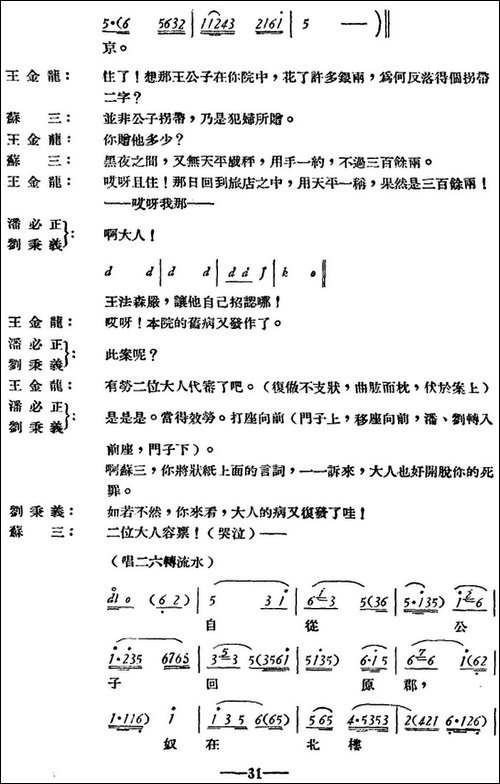 5·(6 5632 | 11243 2161 | 5 — )‖
京。
王金龍： 住了！想那王公子在你院中，花了許多銀兩，爲何反落得個拐帶
二字？
蘇三： 並非公子拐帶，乃是犯婦所贈。
王金龍： 你贈他多少？
蘇三： 黑夜之間，又無天平戥秤，用手一約，不過三百餘兩。
王金龍： 哎呀且住！那日回到旅店之中，用天平一稱，果然是三百餘兩！
——哎呀我那——
潘必正
劉秉義}： 啊大人！
d d | d d | d d f | k o ‖
王法森嚴，讓他自己招認哪！
王金龍： 哎呀！本院的舊病又發作了。
潘必正
劉秉義}： 此案呢？
王金龍： 有勞二位大人代審了吧。（復做不支狀，曲肱而枕，伏於案上）
潘必正
劉秉義}： 是是是。當得效勞。打座向前（門子上，移座向前，潘、劉轉入
前座，門子下）。
啊蘇三，你將狀紙上面的言詞，一一訴來，大人也好開脫你的死
罪。
劉秉義： 如若不然，你來看，大人的病又復發了哇！
蘇三： 二位大人容稟！（哭泣）——
（唱二六轉流水）
(6 2) | 5 3 1 | 6 3 5(36 | 5·135) 1 6 |
自從公
1·235 6765 | 3 3 5(3561 | 5135) 6·15 | 6 6 1(62 |
子回原郡，
1·116) 1 | 1 3 5 6(65) | 5 65 4·5353 | 2(421 6·126) |
奴在北樓
—31—